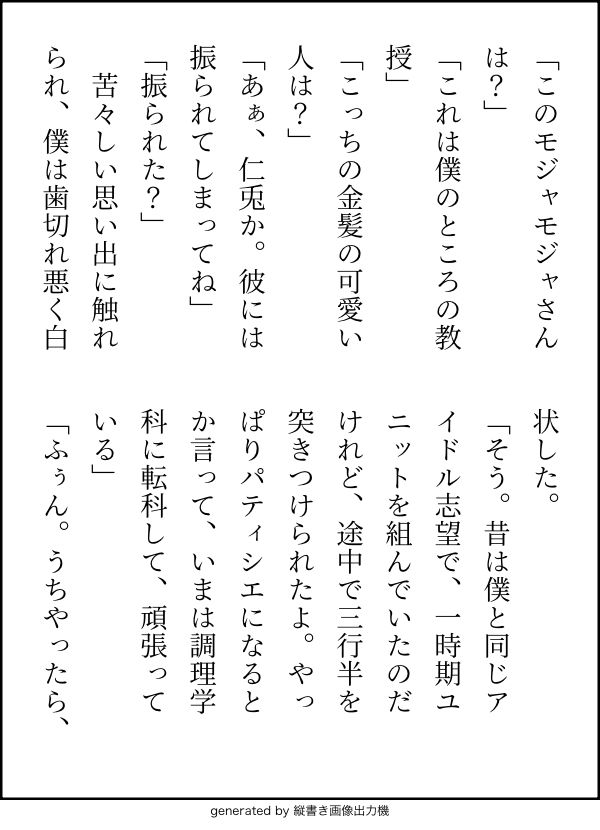 「このモジャモジャさん
は？」
「これは僕のところの教
授」
「こっちの金髪の可愛い
人は？」
「あぁ、仁兎か。彼には
振られてしまってね」
「振られた？」
　苦々しい思い出に触れ
られ、僕は歯切れ悪く白
状した。
「そう。昔は僕と同じア
イドル志望で、一時期ユ
ニットを組んでいたのだ
けれど、途中で三行半を
突きつけられたよ。やっ
ぱりパティシエになると
か言って、いまは調理学
科に転科して、頑張って
いる」
「ふぅん。うちやったら、
generated by 縦書き画像出力機